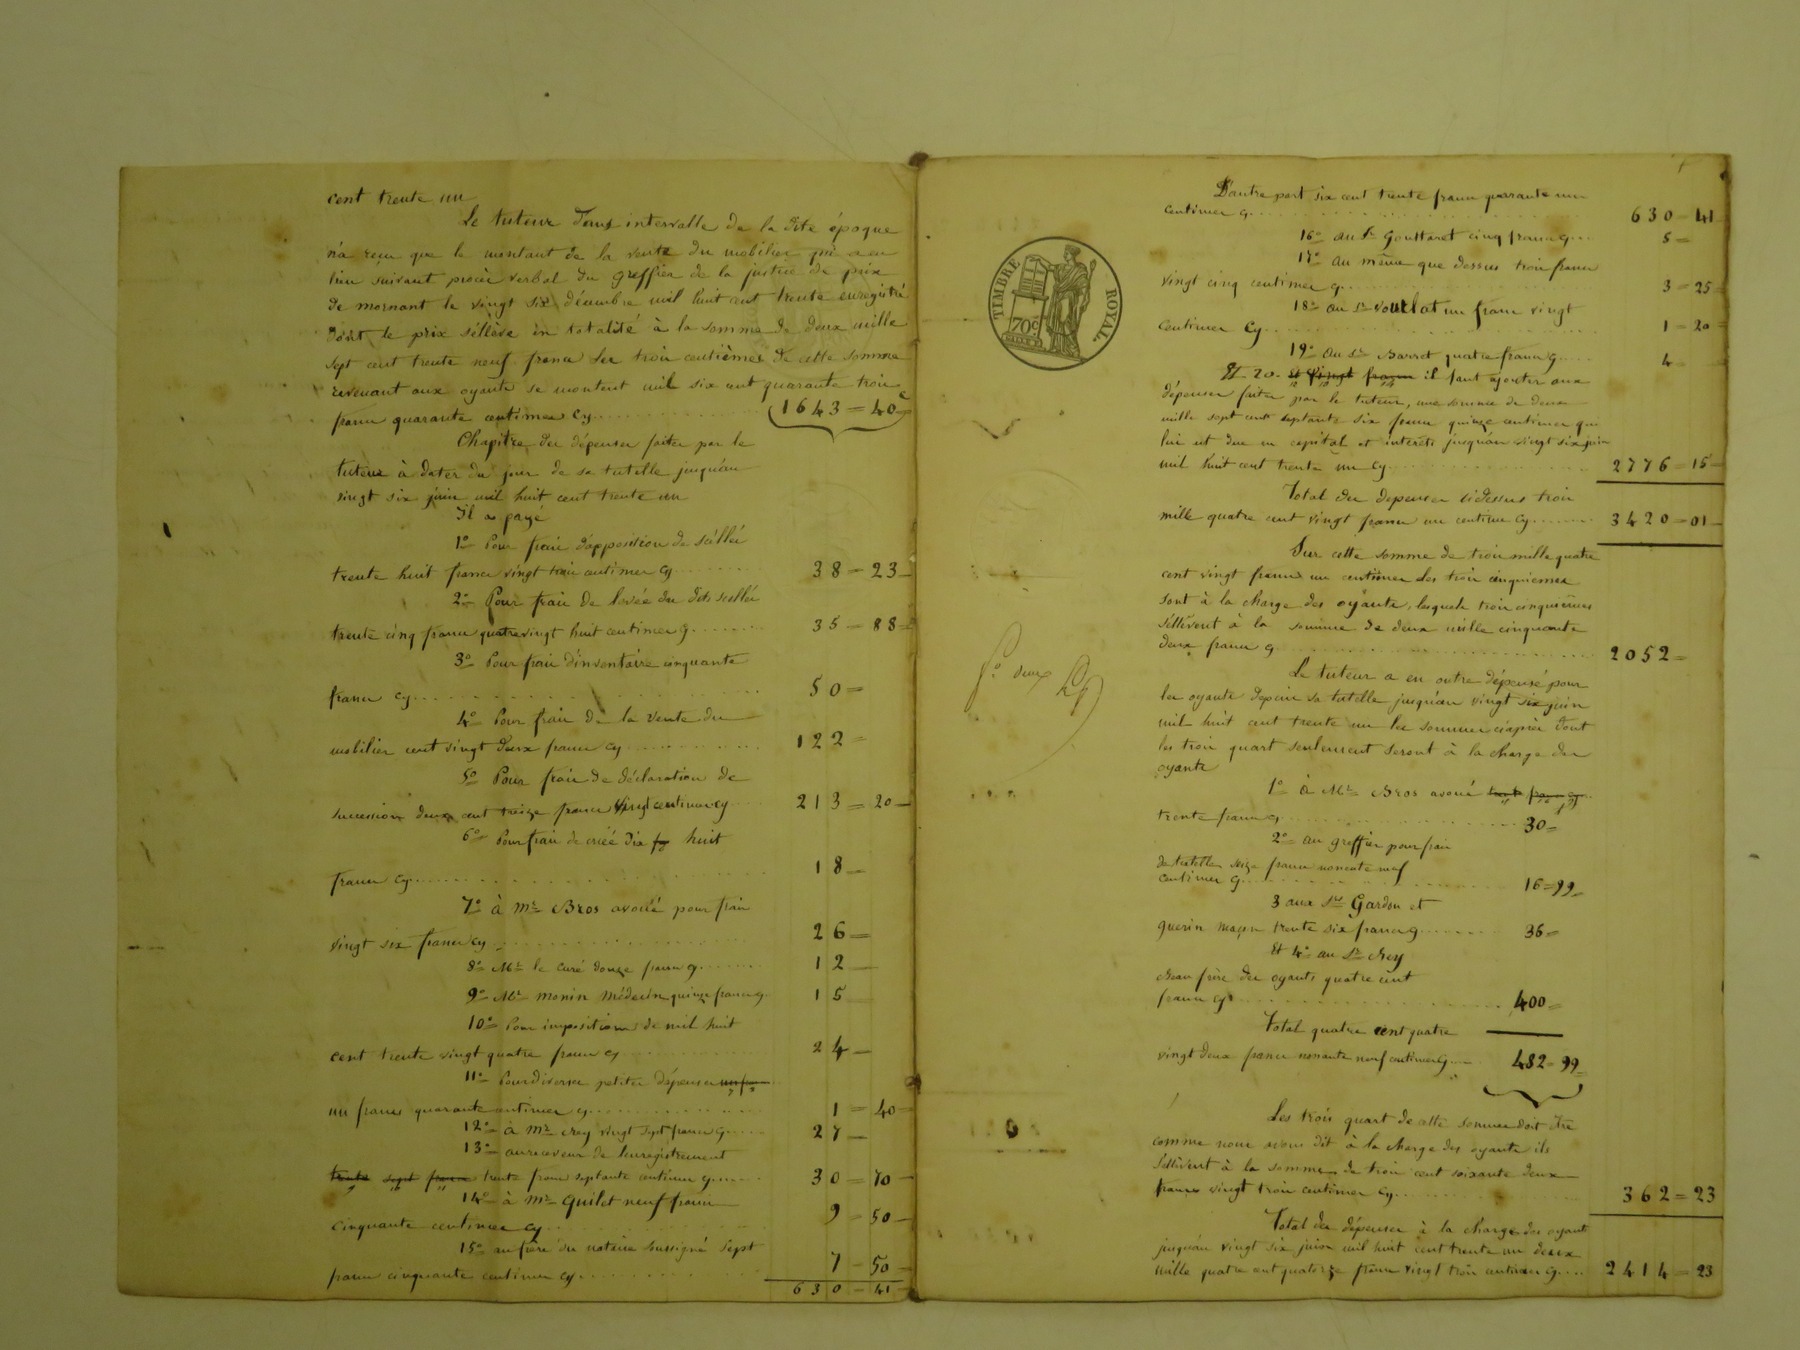 cent trente un
Le tuteur dans intervalle de la dite époque
n'a reçu que le montant de la vente du mobilier qui a eu
lieu suivant procès verbal du greffier de la justice de paix
de mornant le vingt six décembre mil huit cent trente enregistré
dont le prix s'éllève en totalité à la somme de deux mille
sept cent trente neuf francs les trois centièmes de cette somme
revenant aux oyants se montent mil six cent quarante trois
francs quarante centimes Cy 1643=40c
Chapitre des dépenses faites par le
tuteur à dater du jour de sa tutelle jusqu'au
vingt six juin mil huit cent trente un
Il a payé
1o Pour frais d'apposition de scéllés
trente huit francs vingt trois centimes Cy 38=23
2o Pour frais de levée des dits scéllés
trente cinq francs quatrevingt huit centimes Cy 35=88
3o Pour frais d'inventaire cinquante
francs Cy 50=
4o Pour frais de la vente du
mobilier cent vingt deux francs Cy 122=
5o Pour frais de déclaration de
succession deux cent treize francs vingt centimes Cy 213=20
6o Pour frais de criée dix huit
francs Cy 18=
7o à Mr Bros avoué pour frais
vingt six francs Cy 26=
8o Mr le curé douze francs Cy 12
9o Mr monin médecin quinze francs Cy 15
10o Pour impositions de mil huit
cent trente vingt quatre francs Cy 24
11o Pour diverses petites dépenses un franc
un franc quarante centimes Cy 1=40
12o à Mr vingt sept francs Cy 27
13o au receveur de l'enregistrement
trente sept francs trente francs septante centimes Cy 30=70
14o à Mr Quilet neuf francs
cinquante centimes Cy 9=50
15o au frère du notaire soussigné sept
francs cinquante centimes Cy 7=50
630=41
TIMBRE ROYAL.
70c
fo deux
D'autre part six cent trente francs quarante un
centimes Cy 630=41
16o au Sr Gouttaret cinq francs Cy 5=
17o au même que dessus trois francs
vingt cinq centimes Cy 3=25
18o au Sr Voutlat un franc vingt
centimes Cy 1=20
19o au Sr Barret quatre francs Cy 4
Et 20o et vingt francs il faut ajouter aux
dépenses faites par le tuteur, une somme de deux
mille sept cent septante six francs quinze centimes qui
lui est due en capital et intérêts jusqu'au vingt six juin
mil huit cent trente un Cy 2776=15
Total des dépenses cidessus trois
mille quatre cent vingt francs un centime Cy 3420=01
Sur cette somme de trois mille quatre
cent vingt francs un centime les trois cinquiemes
sont à la charge des oyants, lesquels trois cinquiemes
s'éllèvent à la somme de deux mille cinquante
deux francs Cy 2052=
Le tuteur a en outre dépensé pour
les oyants depuis sa tutelle jusqu'au vingt six juin
mil huit cent trente un les sommes ciaprès dont
les trois quart seulement seront à la charge des
oyants
1o à Mr Bros avoué trente francs Cy
trente francs Cy 30=
2o au greffier pour frais
de tutelle seize francs nonante neuf
centimes Cy 16=99
3 aux Srs Gardon et
guerin maçon trente six francs Cy 36=
Et 4o au Sr
beau frère des oyants quatre cent
francs Cy 400=
Total quatre cent quatre
vingt deux francs nonante neuf centimes Cy 482=99
Les trois quart de cette somme doit être
comme nous avons dit à la charge des oyants ils
s'éllèvent à la somme de trois cent soixante deux
francs vingt trois centimes Cy 362=23
Total des dépenses à la charge des oyants
jusqu'au vingt six juin mil huit cent trente un deux
mille quatre cent quatorze francs vingt trois centimes Cy 2414=23